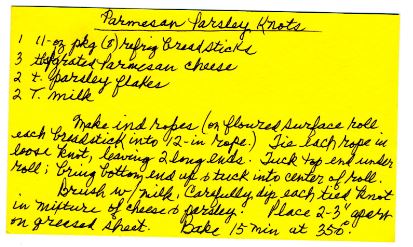 Parmesan Parsley Knots
1 11-oz pkg (8) refrig breadsticks
3 tb grated Parmesan cheese
2 t. parsley flakes
2 T. milk
Make ind ropes (on floured surface roll
each breadstick into 12-in rope.) Tie each rope in
loose knot, leaving 2 long ends. Tuck top end under
roll; bring bottom end up & tuck into center of roll.
Brush w/milk. Carefully dip each tied knot
in mixture of cheese & parsley. Place 2-3" apart
on greased sheet. Bake 15 min at 350°.